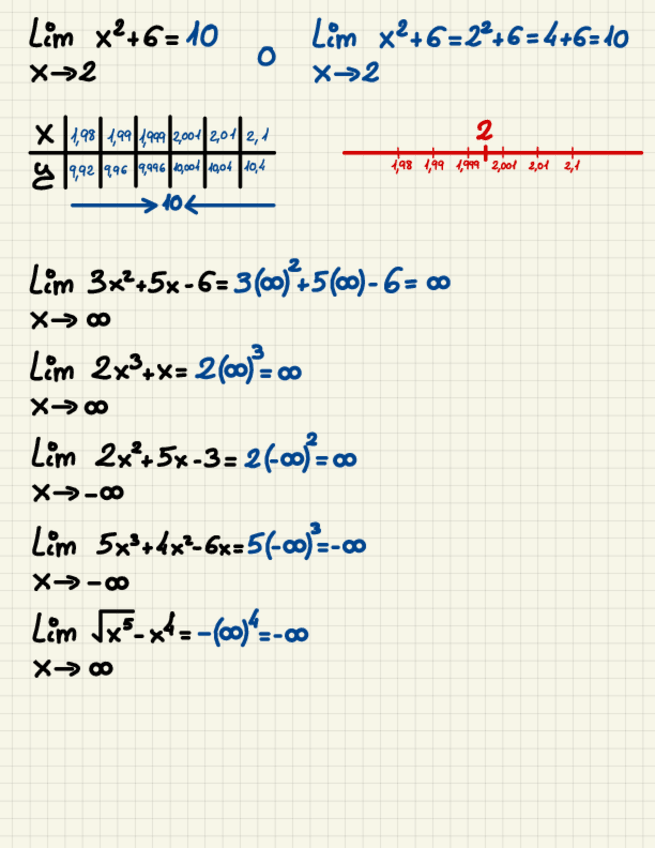 Lim x²+6= 10 o Lim x²+6=2²+6=4+6=10
x→2 x→2
x 1,98 1,99 1,999 2,001 2,01 2,1
y 9,92 9,96 9,996 10,001 10,04 10,4
→10←
2
1,98 1,99 1,999 2,001 2,01 2,1
Lim 3x²+5x-6= 3(∞)²+5(∞)-6= ∞
x→ ∞
Lim 2x³+x= 2(∞)³= ∞
x→ ∞
Lim 2x²+5x-3= 2(-∞)²= ∞
x→ -∞
Lim 5x³+4x²-6x= 5(-∞)³=-∞
x→ -∞
Lim √x⁵-x⁴= -(∞)⁴=-∞
x→ ∞